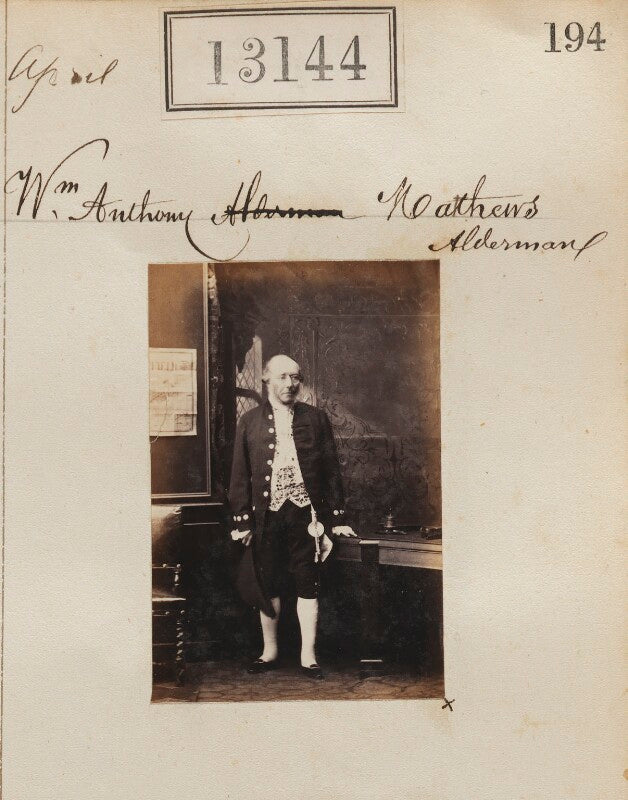 April
13144
194
Wm. Anthony Alderman Mathews
Alderman
x